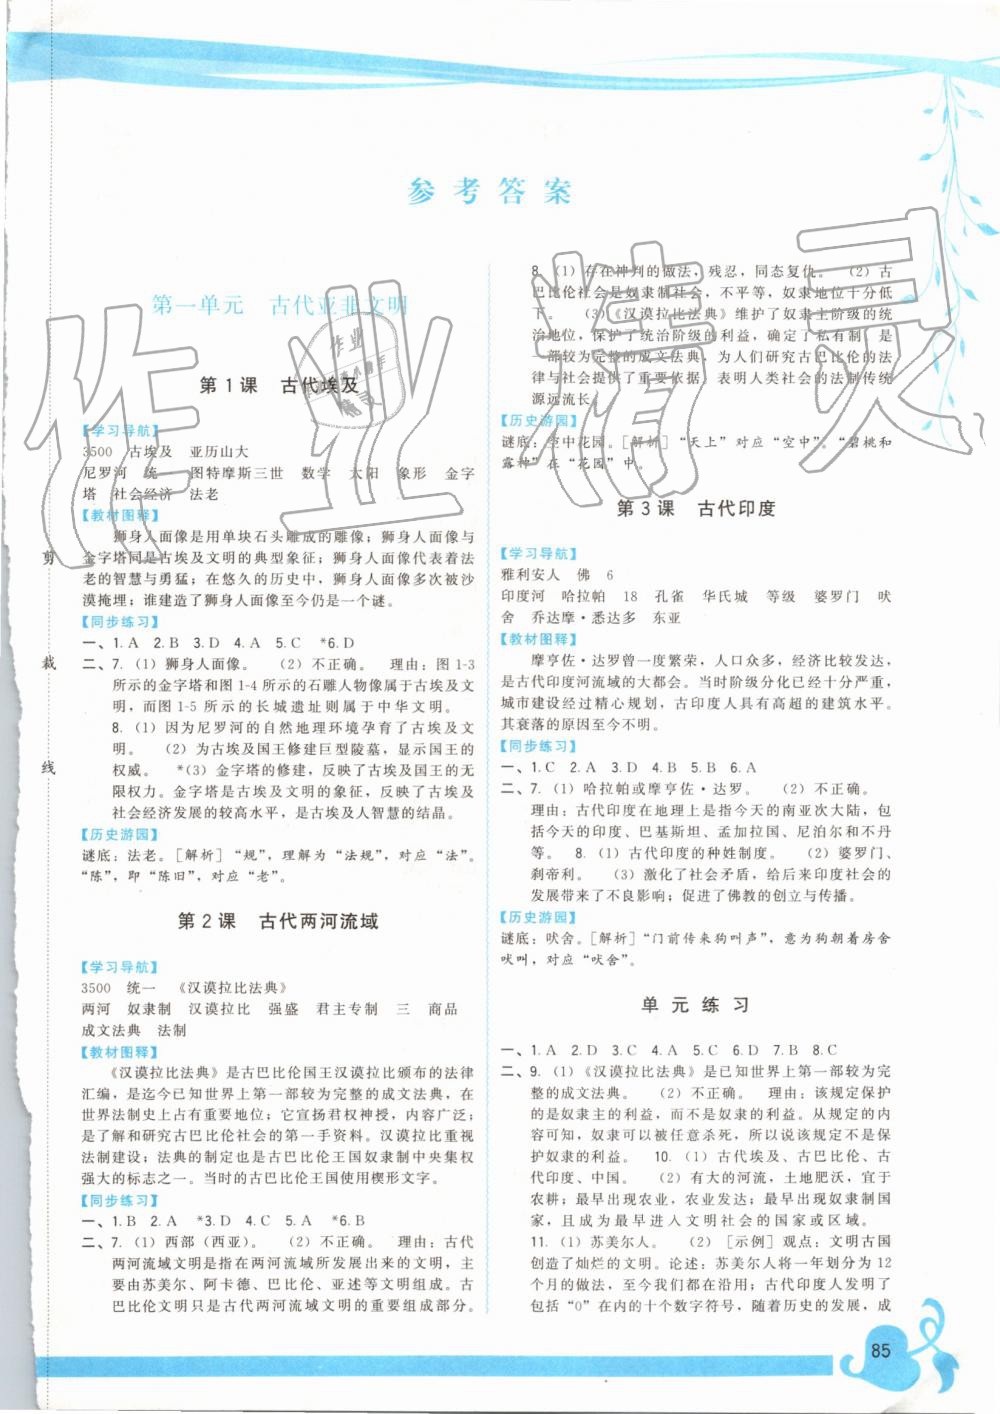 参考答案
第一单元 古代亚非文明
第1课 古代埃及
【学习导航】
3500 古埃及 亚历山大
尼罗河 统一 图特摩斯三世 数学 太阳 象形 金字
塔 社会经济 法老
【教材图释】
狮身人面像是用单块石头雕成的雕像；狮身人面像与
金字塔同是古埃及文明的典型象征；狮身人面像代表着法
老的智慧与勇猛；在悠久的历史中，狮身人面像多次被沙
漠掩埋；谁建造了狮身人面像至今仍是一个谜。
【同步练习】
一、1.A 2.B 3.D 4.A 5.C *6.D
二、7.（1）狮身人面像。 （2）不正确。 理由：图1-3
所示的金字塔和图1-4所示的石雕人物像属于古埃及文
明，而图1-5所示的长城遗址则属于中华文明。
8.（1）因为尼罗河的自然地理环境孕育了古埃及文
明。 （2）为古埃及国王修建巨型陵墓，显示国王的
权威。 *（3）金字塔的修建，反映了古埃及国王的无
限权力。金字塔是古埃及文明的象征，反映了古埃及
社会经济发展的较高水平，是古埃及人智慧的结晶。
【历史游园】
谜底：法老。［解析］“规”，理解为“法规”，对应“法”。
“陈”，即“陈旧”，对应“老”。
第2课 古代两河流域
【学习导航】
3500 统一 《汉谟拉比法典》
两河 奴隶制 汉谟拉比 强盛 君主专制 三 商品
成文法典 法制
【教材图释】
《汉谟拉比法典》是古巴比伦国王汉谟拉比颁布的法律
汇编，是迄今已知世界上第一部较为完整的成文法典，在
世界法制史上占有重要地位；它宣扬君权神授，内容广泛；
是了解和研究古巴比伦社会的第一手资料。汉谟拉比重视
法制建设；法典的制定也是古巴比伦王国奴隶制中央集权
强大的标志之一。当时的古巴比伦王国使用楔形文字。
【同步练习】
一、1.B 2.A *3.D 4.A 5.A *6.B
二、7.（1）西部（西亚）。 （2）不正确。 理由：古代
两河流域文明是指在两河流域所发展出来的文明，主
要由苏美尔、阿卡德、巴比伦、亚述等文明组成。古
巴比伦文明只是古代两河流域文明的重要组成部分。
8.（1）存在神判的做法，残忍，同态复仇。 （2）古
巴比伦社会是奴隶制社会，不平等，奴隶地位十分低
下。 （3）《汉谟拉比法典》维护了奴隶主阶级的统
治地位，保护了统治阶级的利益，确定了私有制，是
一部较为完整的成文法典，为人们研究古巴比伦的法
律与社会提供了重要依据，表明人类社会的法制传统
源远流长。
【历史游园】
谜底：空中花园。［解析］“天上”对应“空中”，“碧桃和
露种”在“花园”中。
第3课 古代印度
【学习导航】
雅利安人 佛 6
印度河 哈拉帕 18 孔雀 华氏城 等级 婆罗门 吠
舍 乔达摩·悉达多 东亚
【教材图释】
摩亨佐·达罗曾一度繁荣，人口众多，经济比较发达，
是古代印度河流域的大都会。当时阶级分化已经十分严重，
城市建设经过精心规划，古印度人具有高超的建筑水平。
其衰落的原因至今不明。
【同步练习】
一、1.C 2.A 3.D 4.B 5.B 6.A
二、7.（1）哈拉帕或摩亨佐·达罗。 （2）不正确。
理由：古代印度在地理上是指今天的南亚次大陆，包
括今天的印度、巴基斯坦、孟加拉国、尼泊尔和不丹
等。 8.（1）古代印度的种姓制度。 （2）婆罗门、
刹帝利。 （3）激化了社会矛盾，给后来印度社会的
发展带来了不良影响；促进了佛教的创立与传播。
【历史游园】
谜底：吠舍。［解析］“门前传来狗叫声”，意为狗朝着房舍
吠叫，对应“吠舍”。
单元练习
一、1.A 2.D 3.C 4.A 5.C 6.D 7.B 8.C
二、9.（1）《汉谟拉比法典》是已知世界上第一部较为完
整的成文法典。 （2）不正确。 理由：该规定保护
的是奴隶主的利益，而不是奴隶的利益。从规定的内
容可知，奴隶可以被任意杀死，所以说该规定不是保
护奴隶的利益。 10.（1）古代埃及、古巴比伦、古
代印度、中国。 （2）有大的河流，土地肥沃，宜于
农耕；最早出现农业，农业发达；最早出现奴隶制国
家，且成为最早进入文明社会的国家或区域。
11.（1）苏美尔人。 （2）［示例］观点：文明古国
创造了灿烂的文明。论述：苏美尔人将一年划分为12
个月的做法，至今我们都在沿用；古代印度人发明了
包括“0”在内的十个数字符号，随着历史的发展，成
剪
裁
线
85
作业精灵